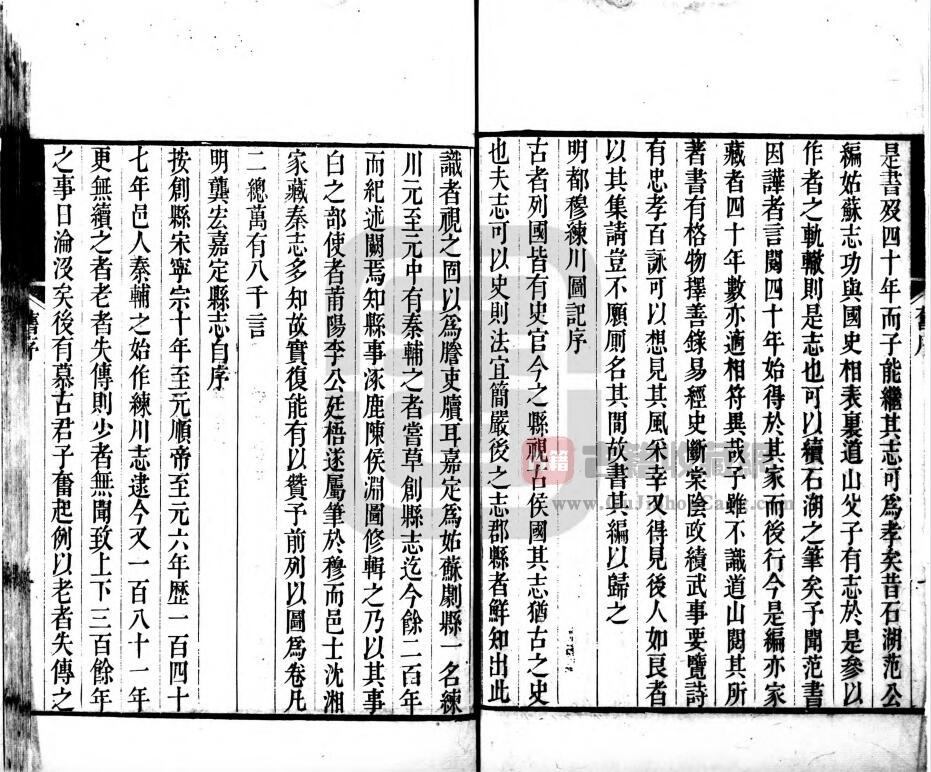 是書歿四十年而子能繼其志可爲孝矣昔石湖范公
編姑蘇志功與國史相表裏道山父子有志於是參以
作者之軌轍則是志也可以續石湖之筆矣予聞范書
因譁者言閱四十年始得於其家而後行今是編亦家
藏者四十年數亦適相符異哉予雖不識道山閱其所
著書有格物擇善錄易經史斷棠陰政績武事要覽詩
有忠孝百詠可以想見其風采幸又得見後人如良者
以其集請豈不願厠名其間故書其編以歸之
明都穆練川圖記序
古者列國皆有史官今之縣視古侯國其志猶古之史
也夫志可以史則法宜簡嚴後之志郡縣者鮮知出此
舊序
識者視之固以爲謄吏牘耳嘉定爲姑蘇劇縣一名練
川元至元中有秦輔之者嘗草創縣志迄今餘二百年
而紀述闕焉知縣事涿鹿陳侯淵圖修輯之乃以其事
白之部使者莆陽李公廷梧遂屬筆於穆而邑士沈湘
家藏秦志多知故實復能有以贊予前列以圖爲卷凡
二總萬有八千言
明龔宏嘉定縣志自序
按創縣宋寧宗十年至元順帝至元六年歷一百四十
七年邑人秦輔之始作練川志逮今又一百八十一年
更無續之者老者失傳則少者無聞致上下三百餘年
之事日淪沒矣後有慕古君子奮起例以老者失傳之
舊序
古籍收藏網